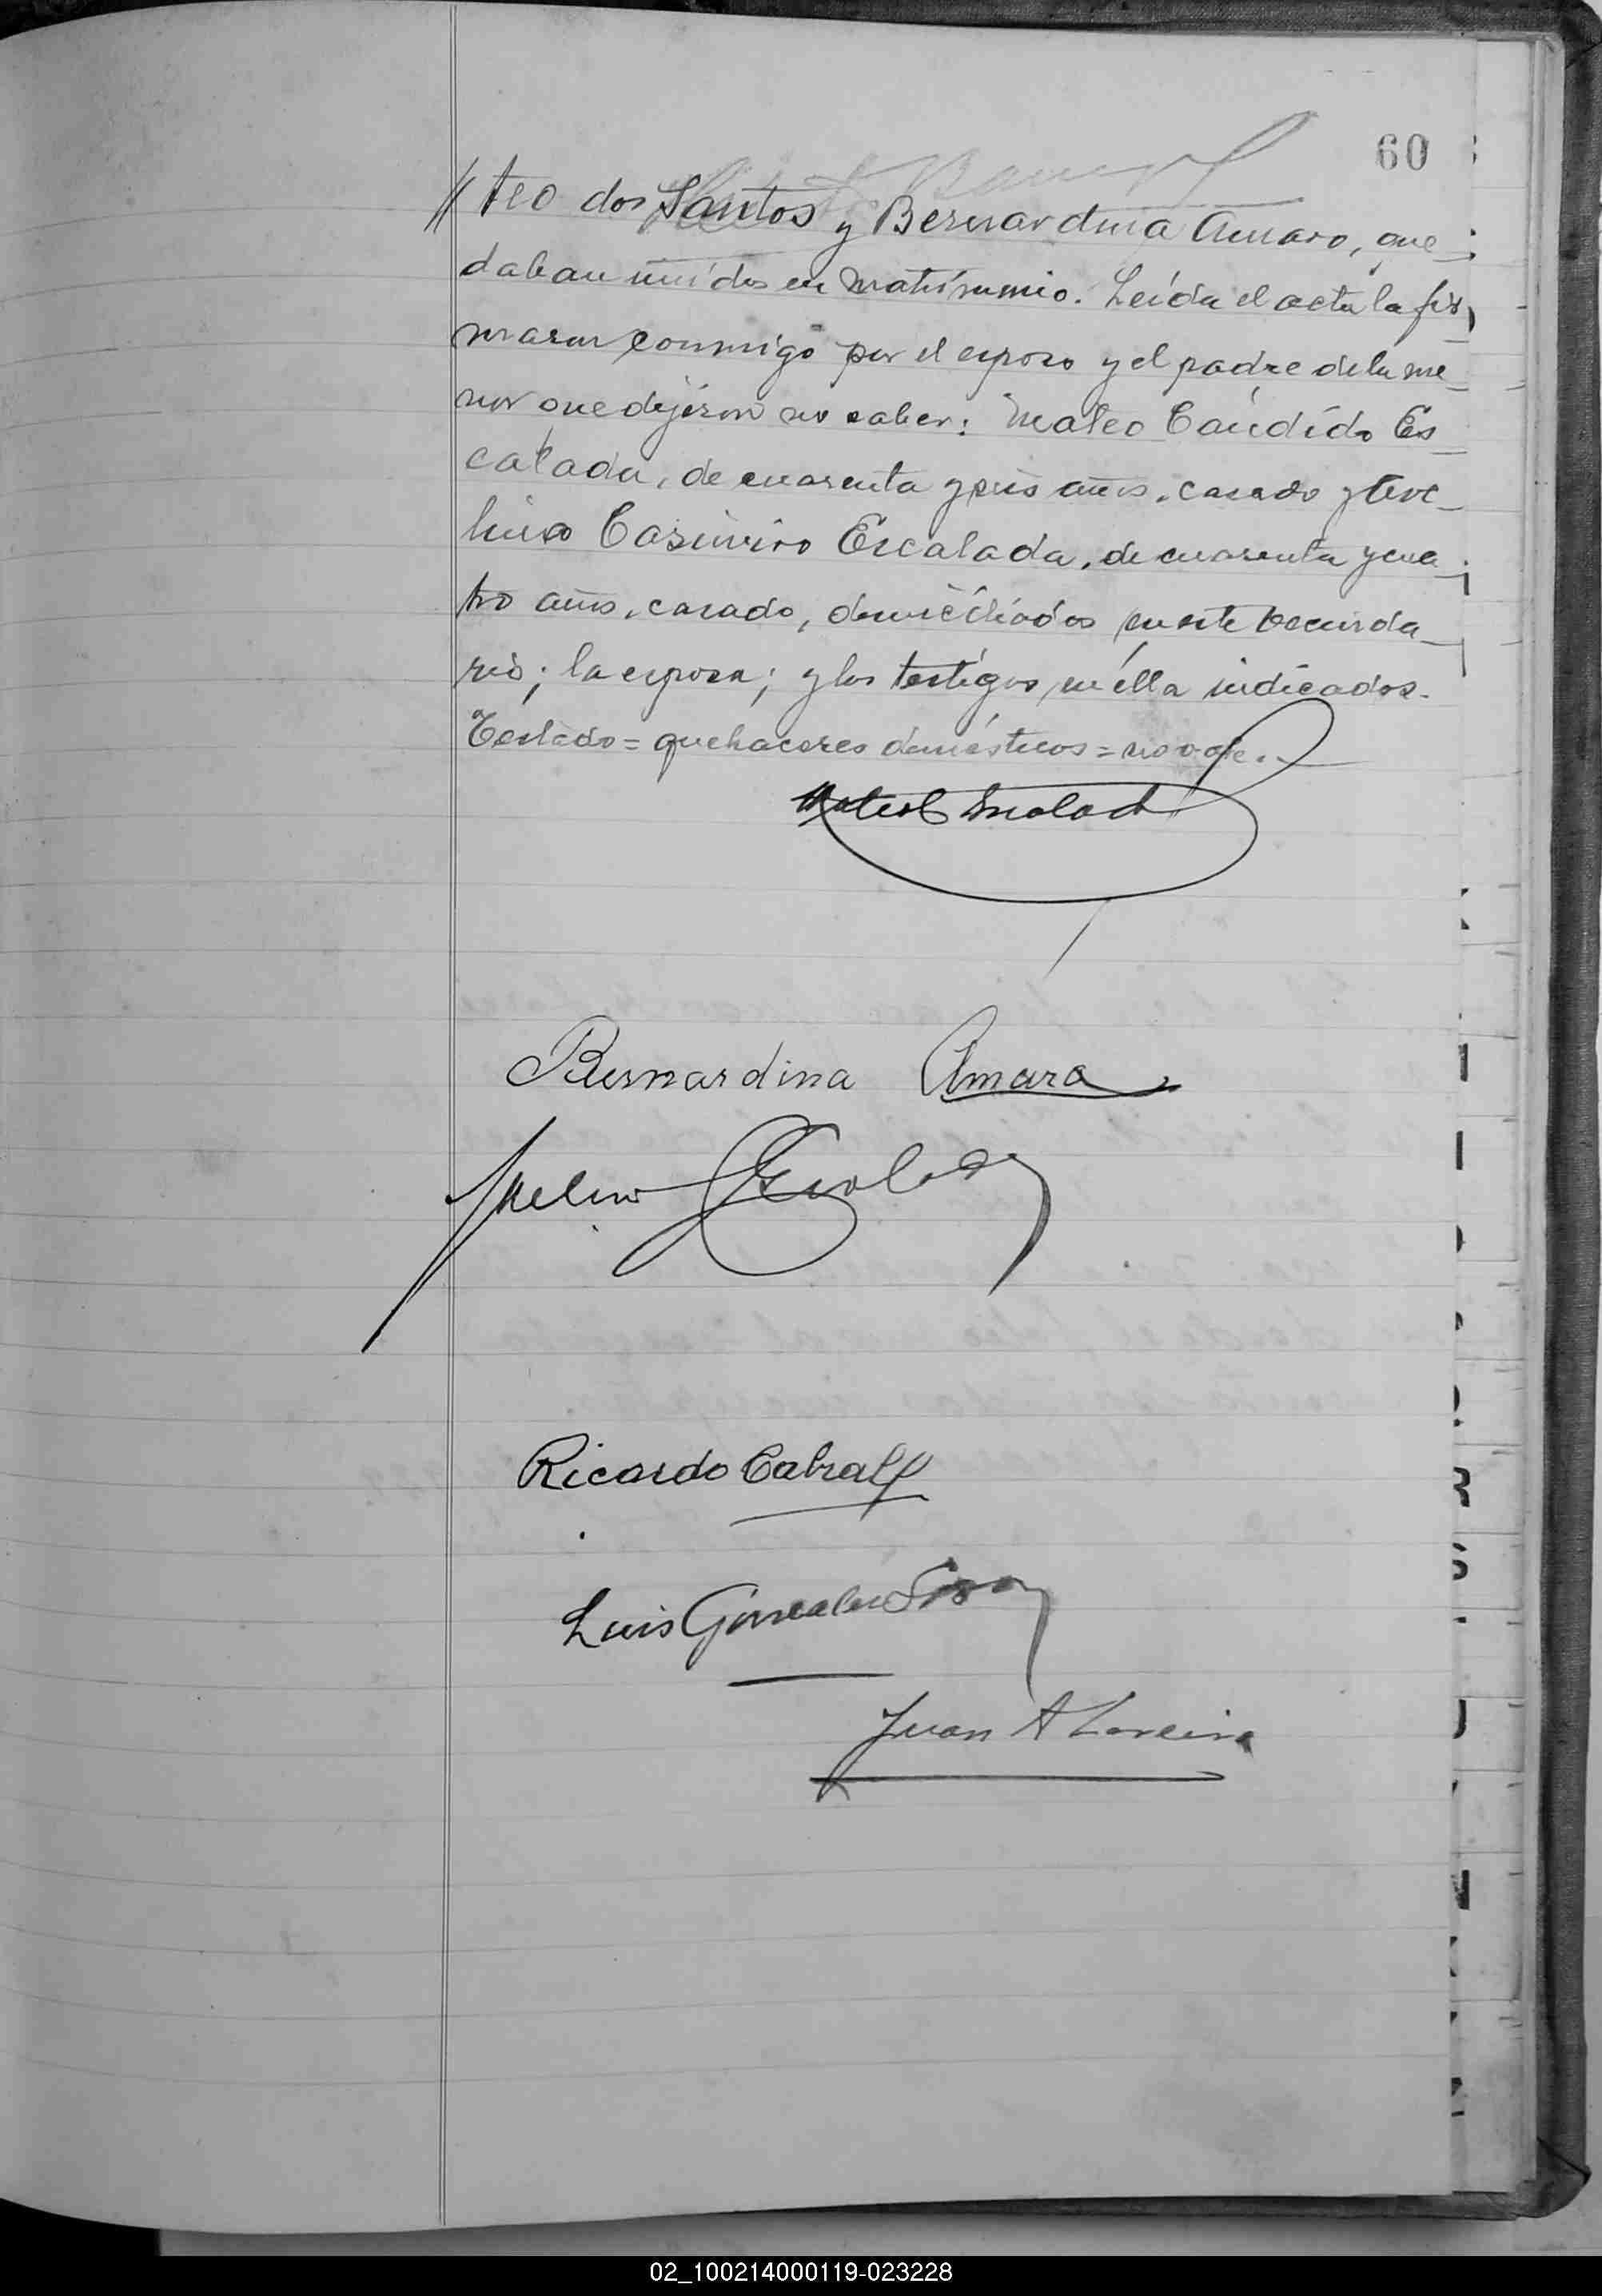 60
// teo dos Santos y Bernardina Amaro, que_
daban unidos en matrimonio. Leída el acta la fir_
maron conmigo por el esposo y el padre de la me_
nor que dijeron no saber: Mateo Cándido Es_
calada, de cuarenta y seis años, casado y Eve_
lino Casimiro Escalada, de cuarenta y cua_
tro años, casado, domiciliados en este vecinda_
rio; la esposa; y los testigos en élla indicados.
Testado = quehaceres domésticos = no vale.
Mateo C Escalada
Bernardina Amaro
Evelino Escalada
Ricardo Cabral
Luis Gonzalez Sosa
Juan A Loreira
02_100214000119-023228